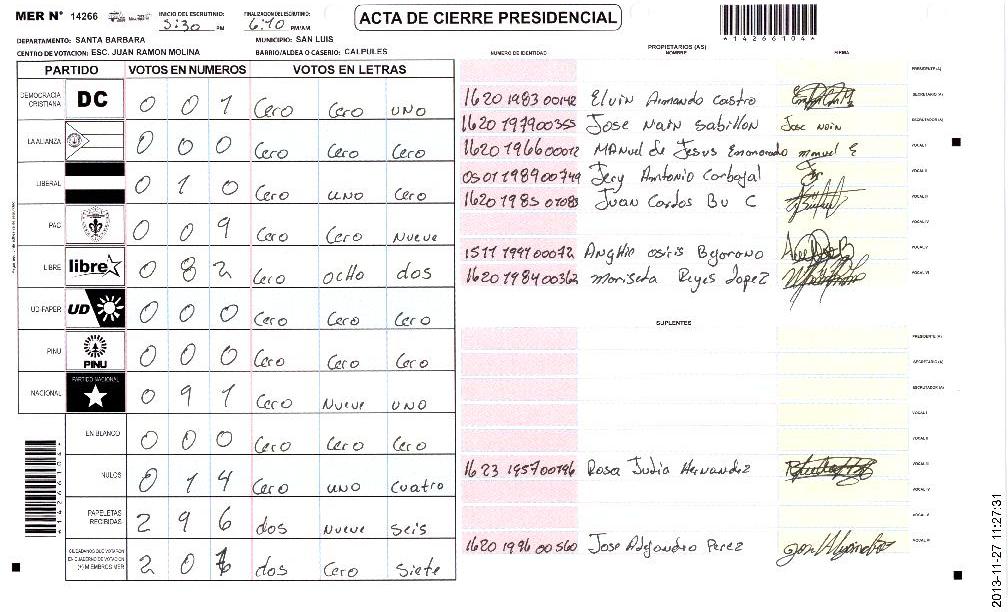 MER N° 14266 INICIO DEL ESCRUTINIO: 5:30 PM FINALIZACION DEL ESCRUTINIO: 6:10 PM/AM
ACTA DE CIERRE PRESIDENCIAL
*14266104*
DEPARTAMENTO: SANTA BARBARA MUNICIPIO: SAN LUIS
CENTRO DE VOTACION: ESC. JUAN RAMON MOLINA BARRIO/ALDEA O CASERIO: CALPULES
PARTIDO VOTOS EN NUMEROS VOTOS EN LETRAS
DEMOCRACIA CRISTIANA DC 0 0 1 Cero Cero uno
LA ALIANZA 0 0 0 Cero Cero Cero
LIBERAL 0 1 0 Cero uno Cero
PAC 0 0 9 Cero Cero Nueve
LIBRE libre 0 8 2 Cero ocho dos
UD-FAPER UD 0 0 0 Cero Cero Cero
PINU PINU 0 0 0 Cero Cero Cero
NACIONAL PARTIDO NACIONAL 0 9 1 Cero Nueve uno
EN BLANCO 0 0 0 Cero Cero Cero
NULOS 0 1 4 Cero uno cuatro
PAPELETAS RECIBIDAS 2 9 6 dos Nueve seis
CIUDADANOS QUE VOTARON EN CUADERNO DE VOTACION (+) MIEMBROS MER 2 0 dos Cero siete
*14266104*
PROPIETARIOS (AS)
NUMERO DE IDENTIDAD NOMBRE FIRMA
PRESIDENTE (A)
1620 1983 00142 Elvin Armando Castro SECRETARIO (A)
1620 1979 00355 Jose Nain Sabillon Jose Nain ESCRUTADOR (A)
1620 1966 00012 Manuel de Jesus Enamorado manuel E VOCAL I
0501 1989 00749 Jery Antonio Carbajal VOCAL II
1620 1985 01083 Juan Carlos Bu C VOCAL III
VOCAL IV
Anghie osiris Bejarano VOCAL V
1620 1984 00362 Mariseda Reyes Lopez VOCAL VI
SUPLENTES
PRESIDENTE (A)
SECRETARIO (A)
ESCRUTADOR (A)
VOCAL I
VOCAL II
1623 1957 00196 Rosa Judia Hernandez VOCAL III
VOCAL IV
VOCAL V
1620 1996 00560 Jose Alejandro Perez VOCAL VI
2013-11-27 11:27:31